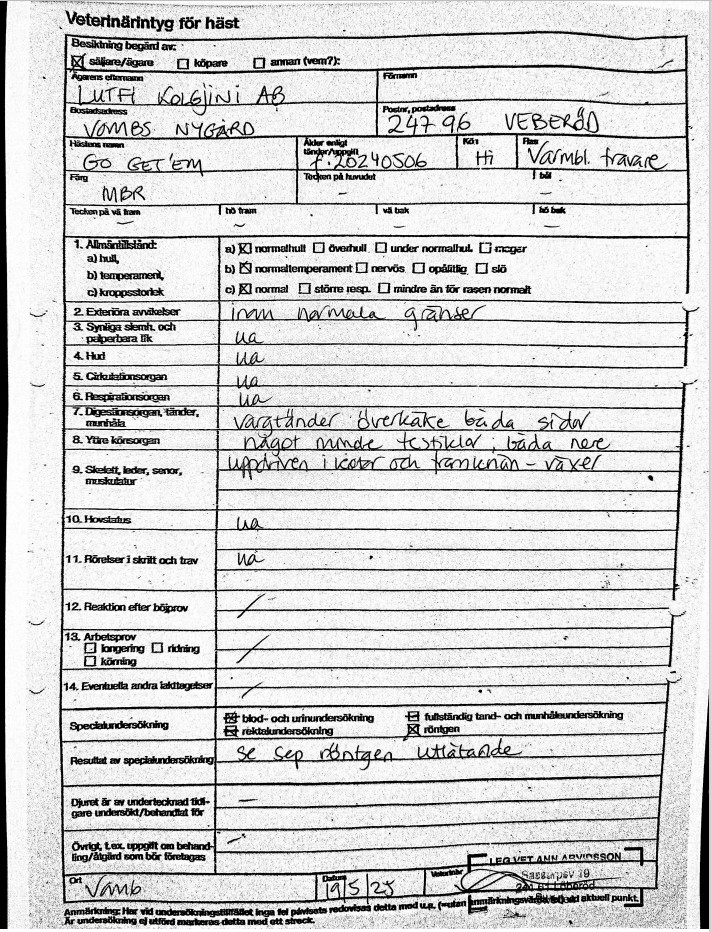 Veterinärintyg för häst
Besiktning begärd av:
säljare/ägare köpare annan (vem?):
Ägarens efternamn Förnamn
LUTFI KOLGJINI AB
Bostadsadress Postnr, postadress
VOMBS NYGÅRD 247 96 VEBERÖD
Hästens namn Ålder enligt tänder/uppgift Kön Ras
GO GET'EM f. 20240506 Hi Varmbl. travare
Färg Tecken på huvudet bål
MBR – –
Tecken på vä fram hö fram vä bak hö bak
– – – –
1. Allmäntillstånd: a) normalhull överhull under normalhul. mager
a) hull,
b) temperament, b) normaltemperament nervös opålitlig slö
c) kroppsstorlek c) normal större resp. mindre än för rasen normalt
2. Exteriöra avvikelser inom normala gränser
3. Synliga slemh. och palperbara lfk ua
4. Hud ua
5. Cirkulationsorgan ua
6. Respirationsorgan ua
7. Digestionsorgan, tänder, munhåla vargtänder överkäke båda sidor
8. Yttre könsorgan något mindre testiklar, båda nere
9. Skelett, leder, senor, muskulatur uppdriven i kotor och framknän – växer
10. Hovstatus ua
11. Rörelser i skritt och trav ua
12. Reaktion efter böjprov /
13. Arbetsprov /
longering ridning
körning
14. Eventuella andra iakttagelser /
Specialundersökning blod- och urinundersökning fullständig tand- och munhåleundersökning
rektalundersökning röntgen
Resultat av specialundersökning se sep röntgen utlåtande
Djuret är av undertecknad tidigare undersökt/behandlat för –
Övrigt, t.ex. uppgift om behandling/åtgärd som bör företagas –
LEG VET ANN ARVIDSSON
Ort Datum Veterinär
Vomb 19/5 25
Anmärkning: Har vid undersökningstillfället inga fel påvisats redovisas detta med u.a. (=utan anmärkningsvärda fel) vid aktuell punkt.
Är undersökning ej utförd markeras detta med ett streck.